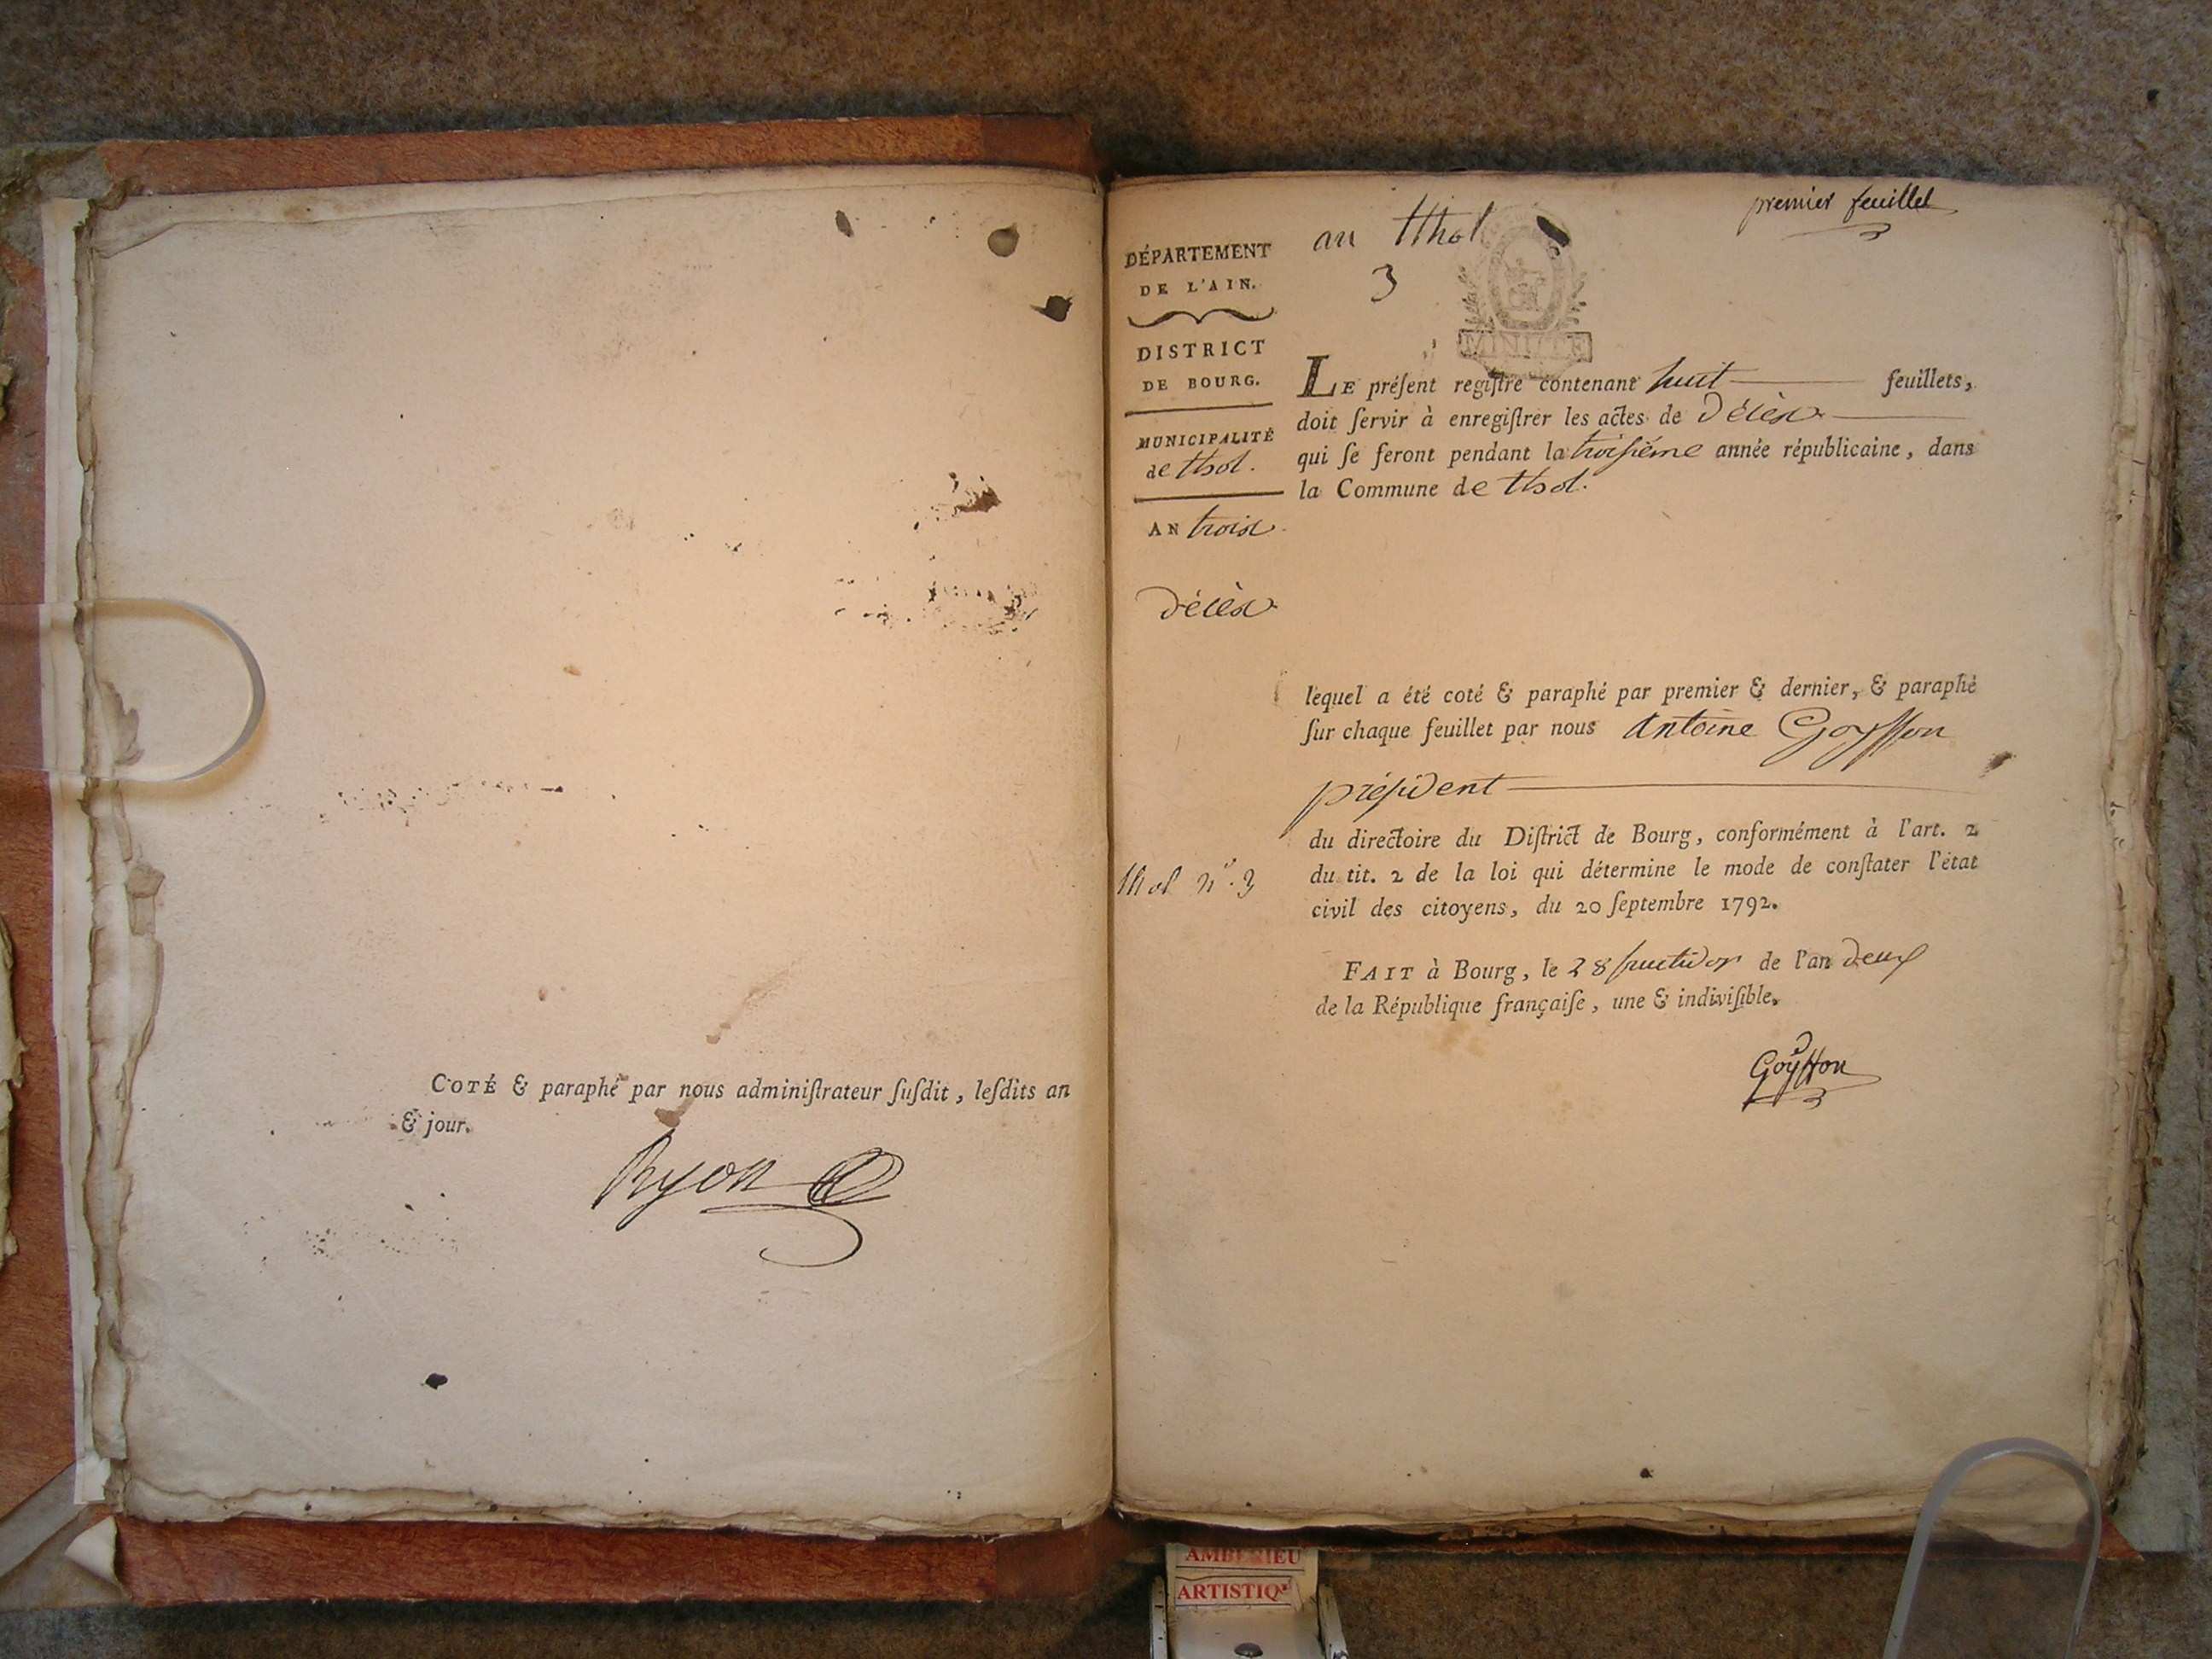 COTÉ & paraphé par nous adminiſtrateur ſuſdit, leſdits an
& jour.
Ryon
premier feuillet
an thol
3
MINUTE
DÉPARTEMENT
DE L'AIN.
DISTRICT
DE BOURG.
MUNICIPALITÉ
de thol.
AN trois
Décès
thol n.º 3
LE préſent regiſtre contenant huit feuillets,
doit ſervir à enregiſtrer les actes de Décès
qui ſe feront pendant la troiſiéme année républicaine, dans
la Commune de thol.
lequel a été coté & paraphé par premier & dernier, & paraphé
ſur chaque feuillet par nous Antoine Goyffon
préſident
du directoire du Diſtrict de Bourg, conformément à l'art. 2
du tit. 2 de la loi qui détermine le mode de conſtater l'état
civil des citoyens, du 20 ſeptembre 1792.
FAIT à Bourg, le 28 fructidor de l'an deux
de la République françaiſe, une & indiviſible.
Goyffon
AMBERIEU
ARTISTIQ